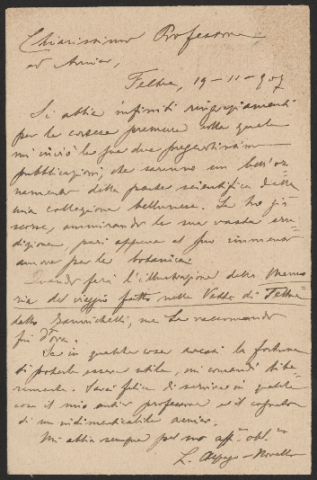 Chiarissimo Professore
ed Amico,
Feltre, 19-11-907
Si abbia infiniti ringraziamenti
per la cortese premura colla quale
mi inviò le sue due pregiatissime
pubblicazioni, che saranno un bell'or-
namento della parte scientifica della
mia collezione bellunese. Le ho già
scorse, ammirando la sua vasta eru-
dizione, pari appena al suo immenso
amore per la botanica.
Quando farà l'illustrazione della Memo
ria del viaggio fatto nelle Vette di Feltre
dello Zannichelli, me La raccomando
fin d'ora.
Se in qualche cosa avessi la fortuna
di poterle essere utile, mi comandi libe-
ramente. Sarò felice di servire in qualche
cosa il mio antico professore ed il
di un indimenticabile amico.
Mi abbia sempre pel suo aff.mo obbl.mo
L. Alpago-Novello